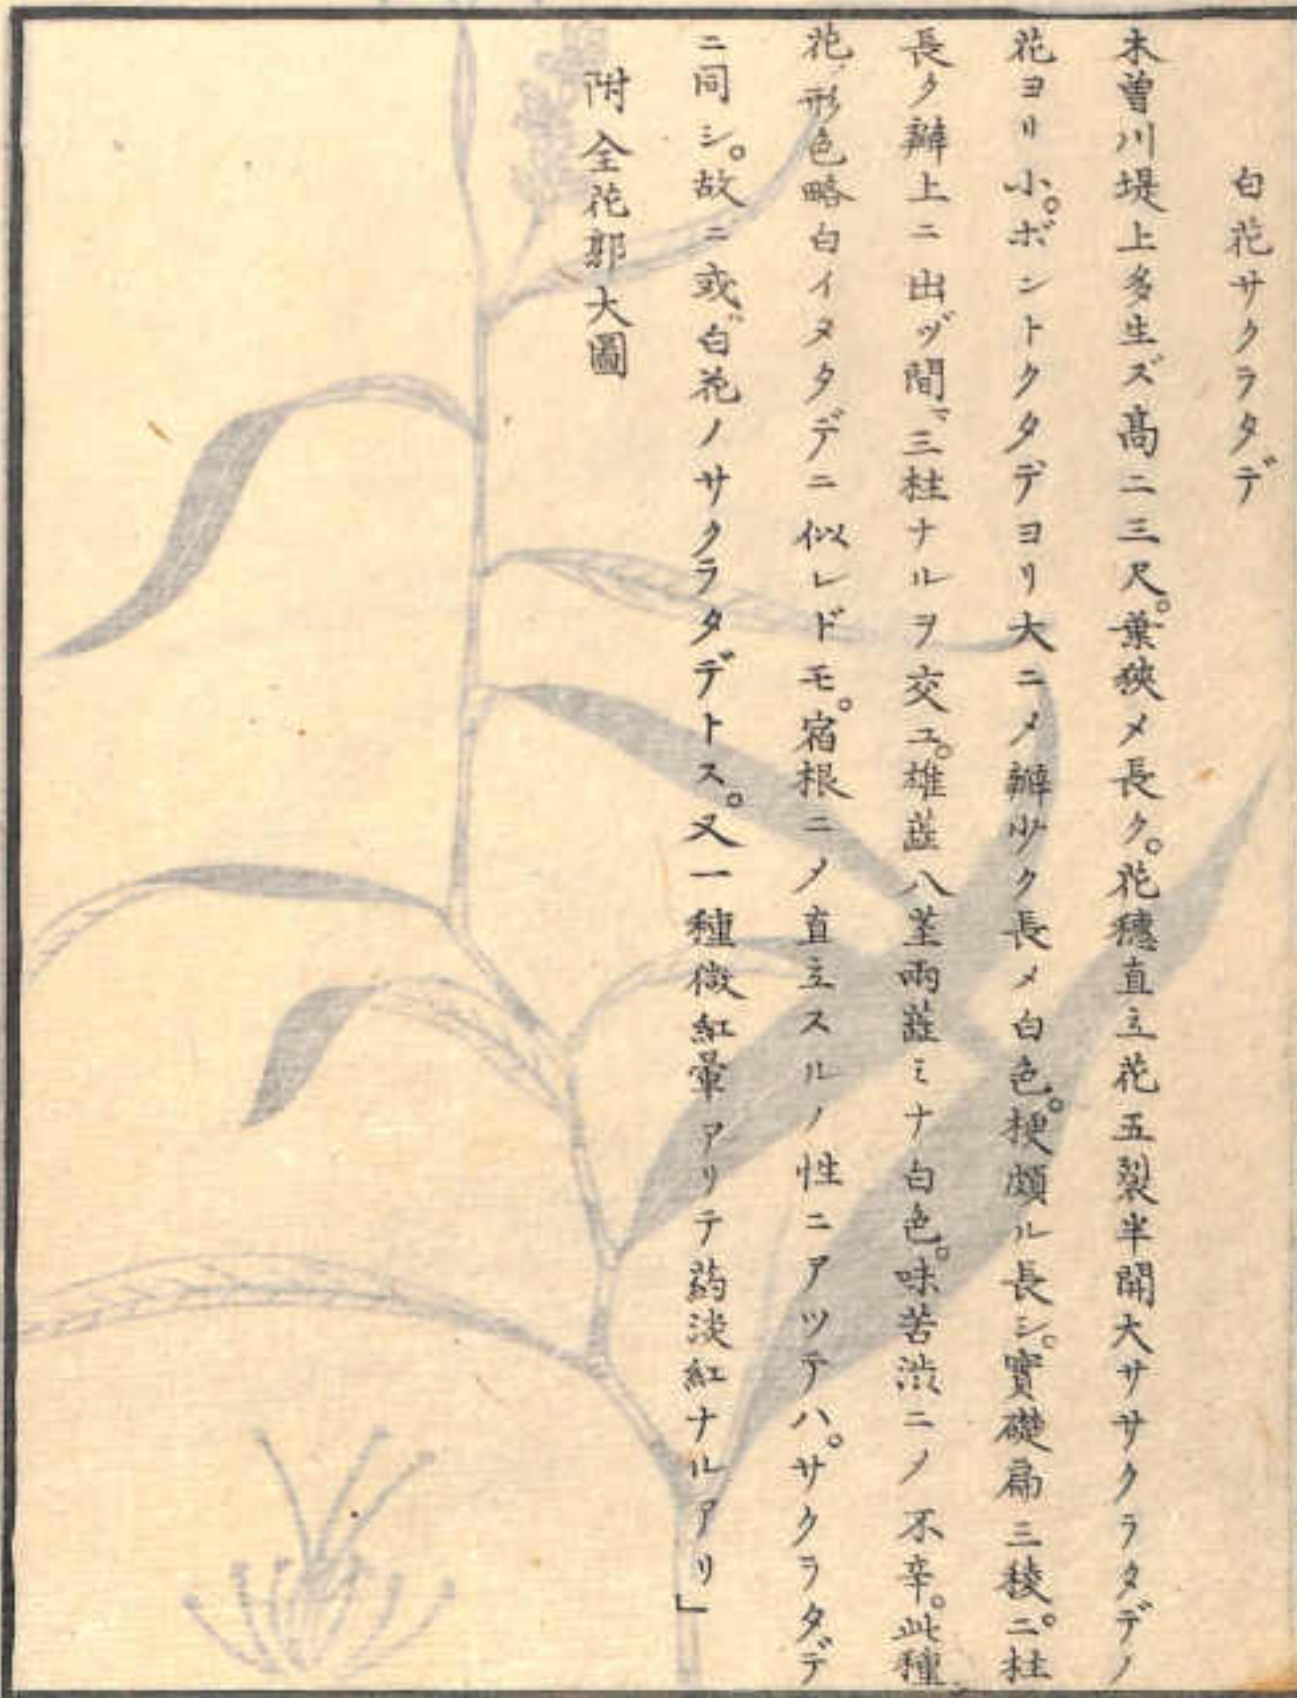 白花サクラタデ
木曽川堤上多生ズ高二三尺。葉狹メ長ク。花穗直立花五裂半開大ササクラタデノ
花ヨリ小。ボントクタデヨリ大ニメ瓣少ク長メ白色。梗頗ル長シ。實礎扁三稜。二柱
長ク瓣上ニ出ヅ間〻三柱ナルヲ交ユ。雄蕋八莖兩蕋ミナ白色。味苦渋ニノ不辛。此種ン
花形色略白イヌタデニ似レドモ。宿根ニノ直立スルノ性ニアツテハ。サクラタデ
ニ同シ。故ニ或白花ノサクラタデトス。又一種微紅暈アリテ葯淡紅ナルアリ」
附全花郭大圖